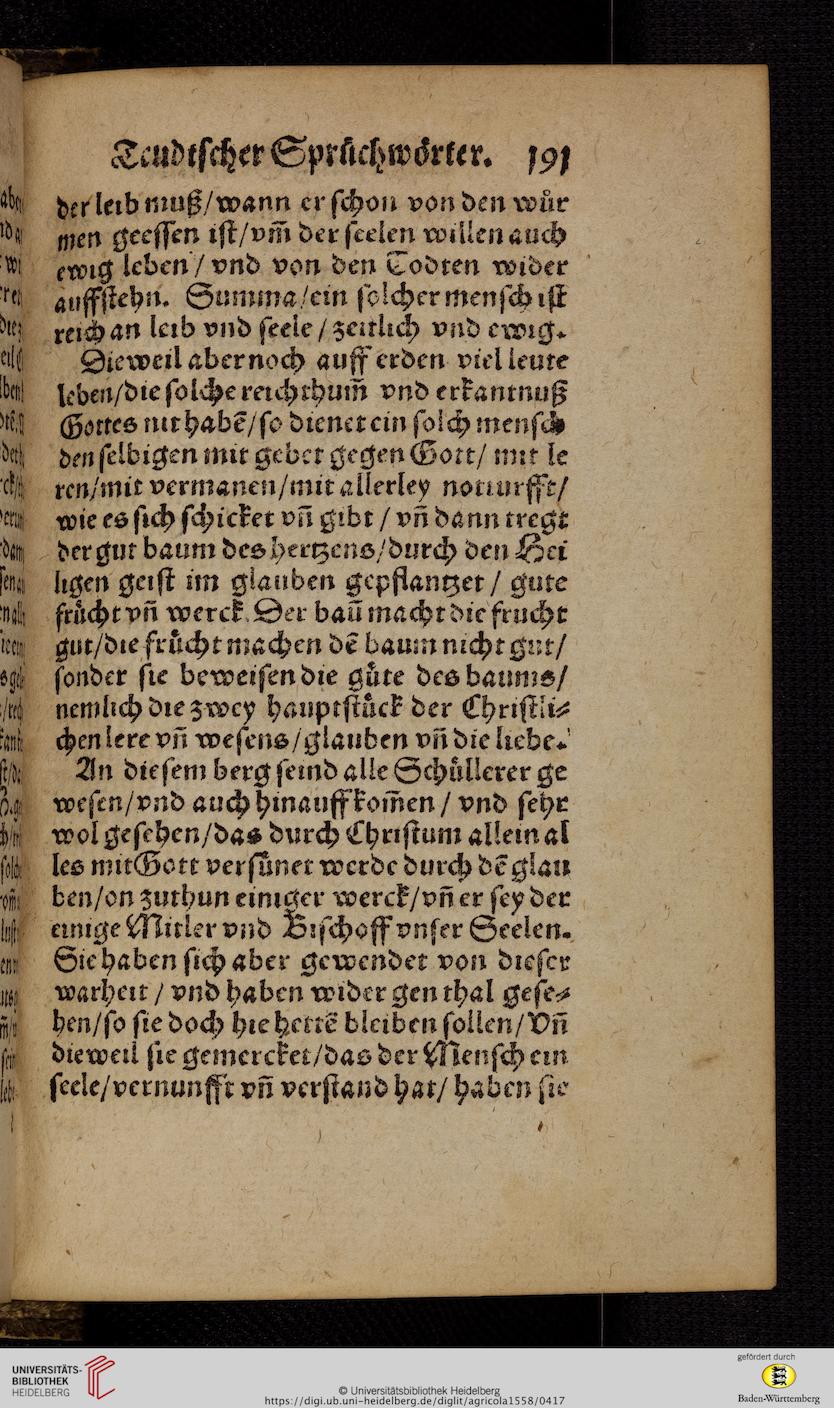 Teudtscher Sprůchwȯrter. 191
der leib muß/wann er schon von den wůr
men geessen ist/vm̃ der seelen willen auch
ewig leben / vnd von den Todten wider
auffstehn. Summa/ein solcher mensch ist
reich an leib vnd seele / zeitlich vnd ewig.
Dieweil aber noch auff erden viel leute
leben/die solche reichthum̃ vnd erkantnuß
Gottes nit habẽ/so dienet ein solch mensch
den selbigen mit gebet gegen Gott/ mit le
ren/mit vermanen/mit allerley notturfft/
wie es sich schicket vñ gibt / vñ dann tregt
der gut baum des hertzens/durch den Hei
ligen geist im glauben gepflantzet / gute
frůcht vñ werck. Der baũ macht die frucht
gut/die frůcht machen dẽ baum nicht gut/
sonder sie beweisen die gůte des baums/
nemlich die zwey hauptstůck der Christli⸗
chen lere vñ wesens/glauben vñ die liebe.
An diesem berg seind alle Schůllerer ge
wesen/vnd auch hinauff kom̃en / vnd sehr
wol gesehen/das durch Christum allein al
les mit Gott versůnet werde durch dẽ glau
ben/on zuthun einiger werck/vñ er sey der
einige Mitler vnd Bischoff vnser Seelen.
Sie haben sich aber gewendet von dieser
warheit / vnd haben wider gen thal gese⸗
hen/so sie doch hie hettẽ bleiben sollen/Vñ
dieweil sie gemercket/das der Mensch ein
seele/vernunfft vñ verstand hat/ haben sie
UNIVERSITÄTS-
BIBLIOTHEK
HEIDELBERG
© Universitätsbibliothek Heidelberg
https://digi.ub.uni-heidelberg.de/diglit/agricola1558/0417
gefördert durch
Baden-Württemberg